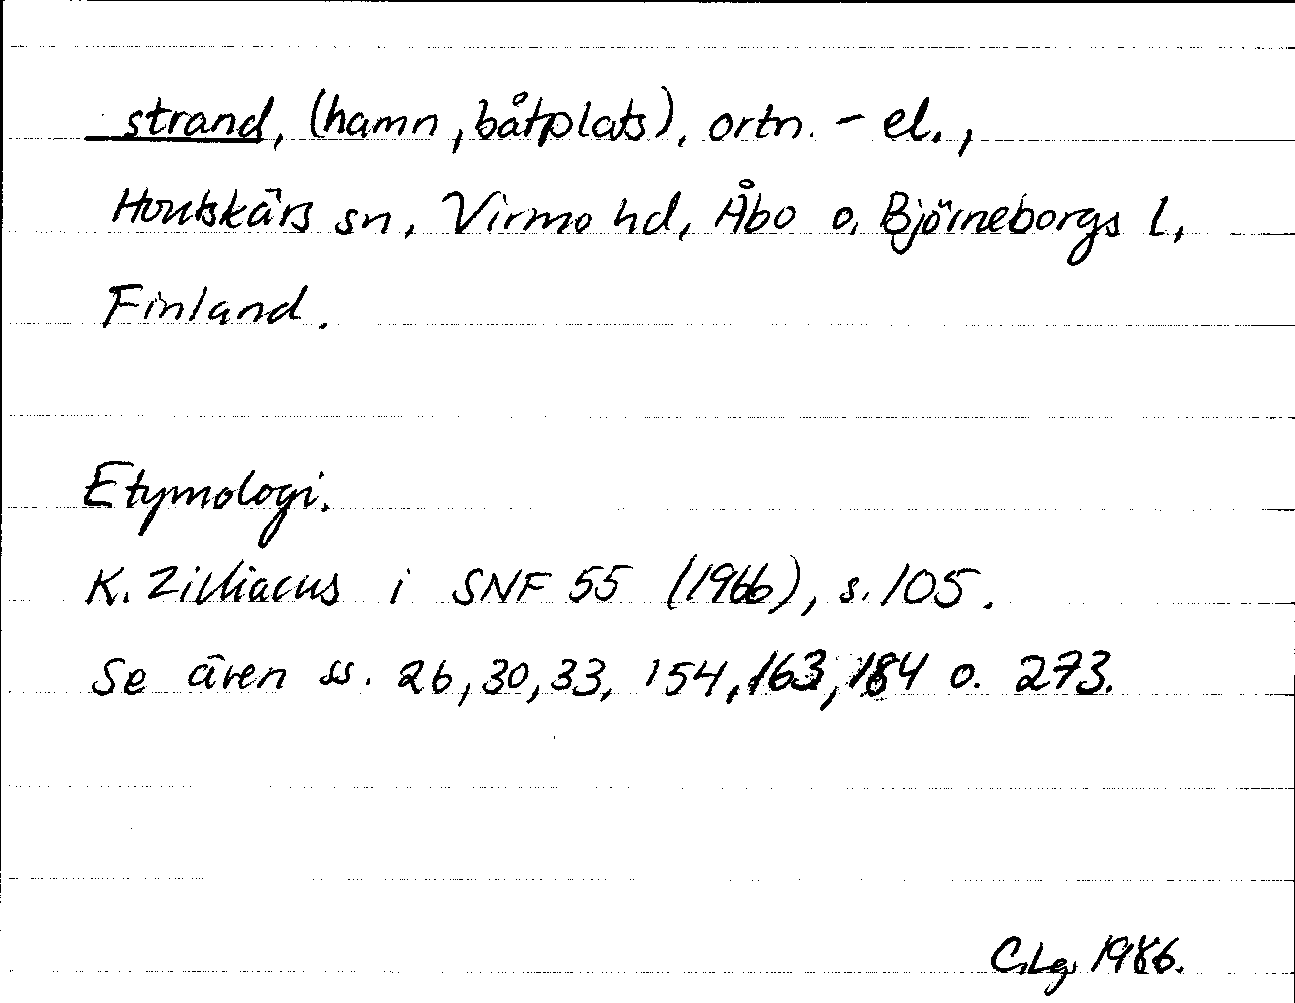 strand, (hamn, båtplats), ortn. - el.,
Houtskärs sn, Virmo hd, Åbo o. Björneborgs l,
Finland.
Etymologi.
K. Zilliacus i SNF 55 (1966), s. 105.
Se även ss. 26, 30, 33, 154, 163, 184 o. 273.
C.Lg. 1986.